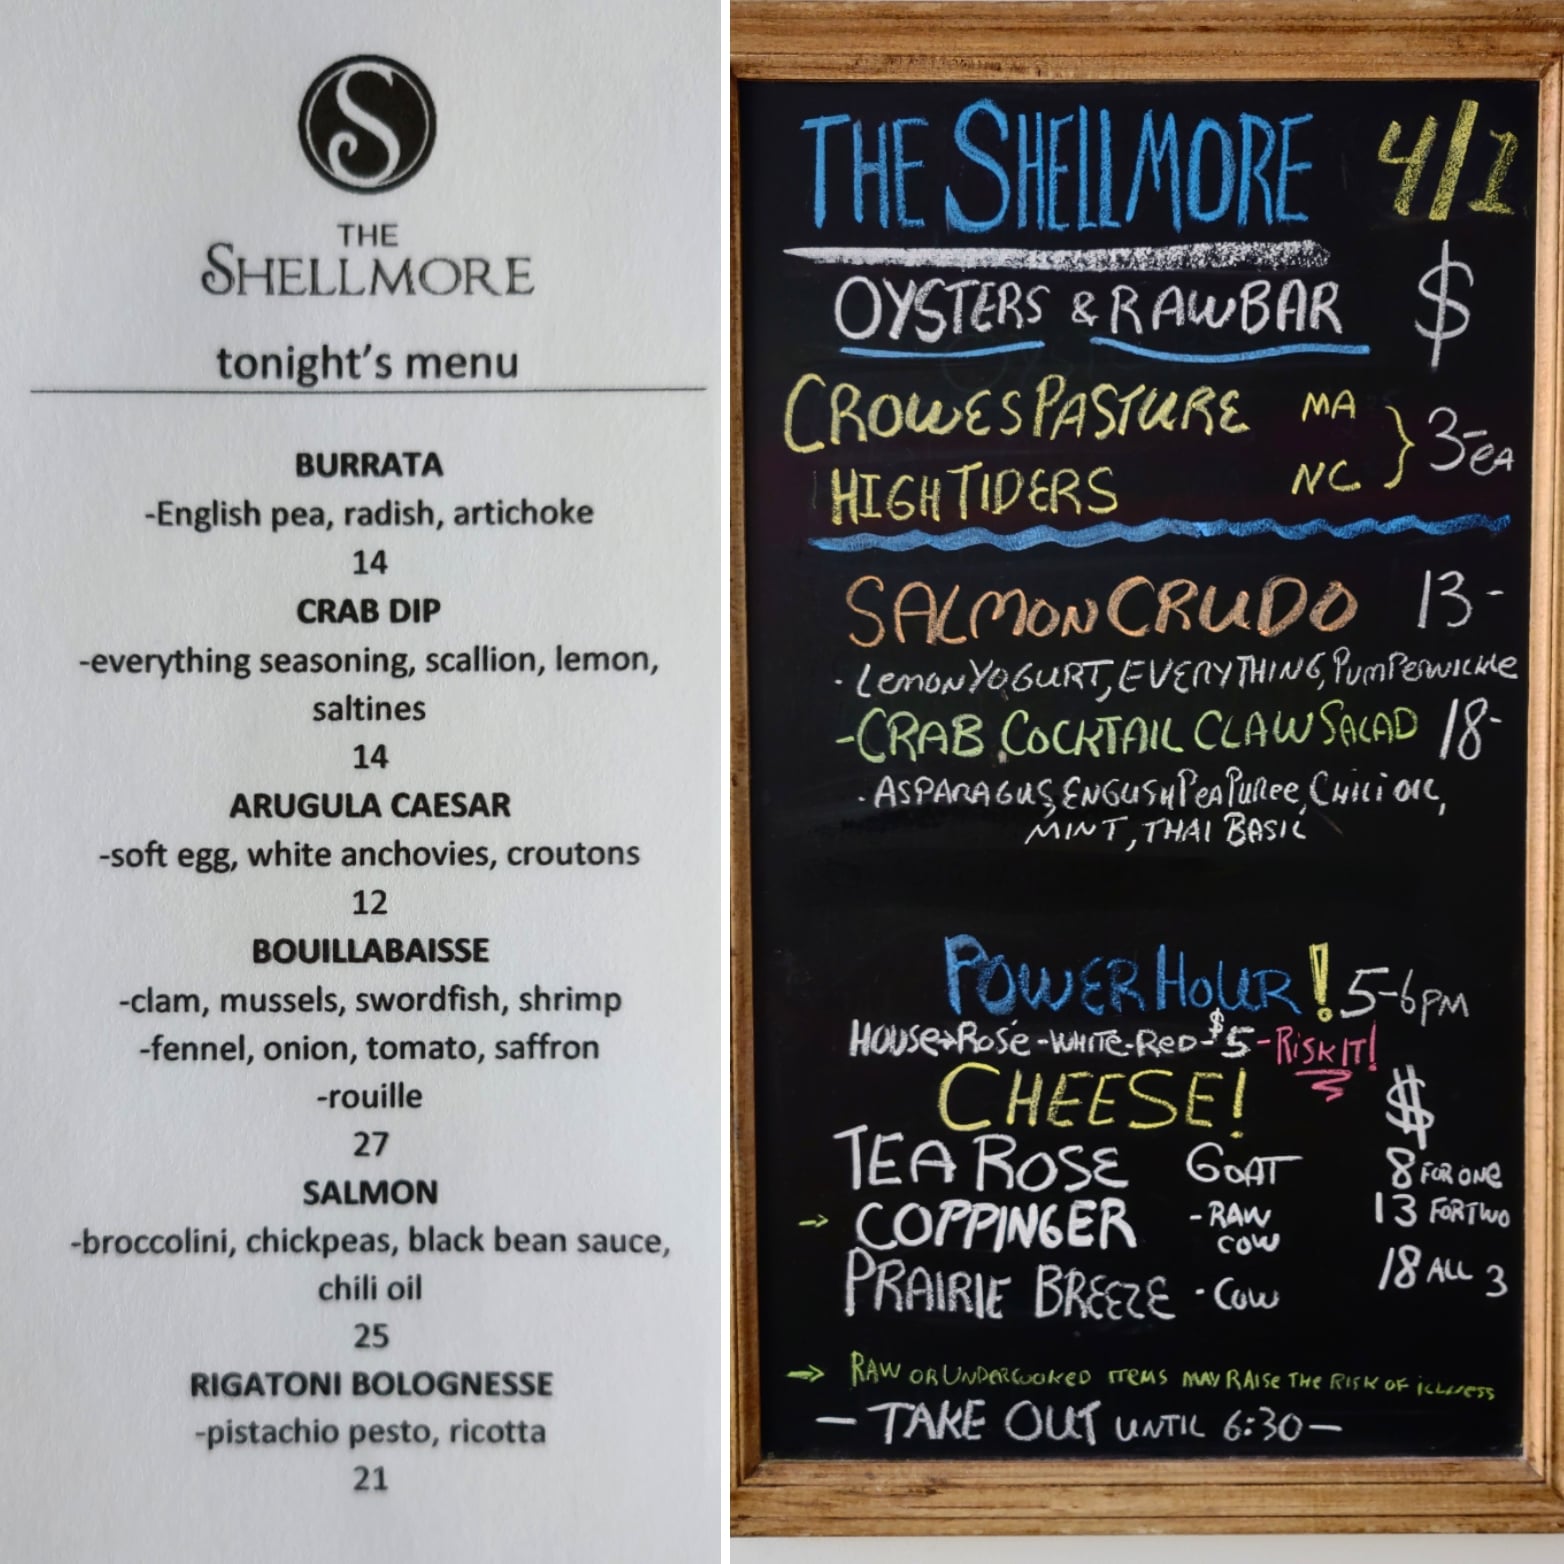 S
THE
SHELLMORE
tonight's menu
BURRATA
-English pea, radish, artichoke
14
CRAB DIP
-everything seasoning, scallion, lemon,
saltines
14
ARUGULA CAESAR
-soft egg, white anchovies, croutons
12
BOUILLABAISSE
-clam, mussels, swordfish, shrimp
-fennel, onion, tomato, saffron
-rouille
27
SALMON
-broccolini, chickpeas, black bean sauce,
chili oil
25
RIGATONI BOLOGNESSE
-pistachio pesto, ricotta
21
THE SHELLMORE 4/1
OYSTERS & RAWBAR $
CROWES PASTURE MA
HIGH TIDERS NC } 3-EA
SALMON CRUDO 13-
· LEMON YOGURT, EVERYTHING, PUMPERNICKLE
-CRAB COCKTAIL CLAW SALAD 18-
· ASPARAGUS, ENGLISH PEA PUREE, CHILI OIL,
MINT, THAI BASIL
POWER HOUR! 5-6PM
HOUSE→ROSÉ-WHITE-RED-$5-RISK IT!
CHEESE! $
TEA ROSE GOAT 8 FOR ONE
→ COPPINGER -RAW COW 13 FOR TWO
PRAIRIE BREEZE - COW 18 ALL 3
→ RAW OR UNDERCOOKED ITEMS MAY RAISE THE RISK OF ILLNESS
— TAKE OUT UNTIL 6:30 —